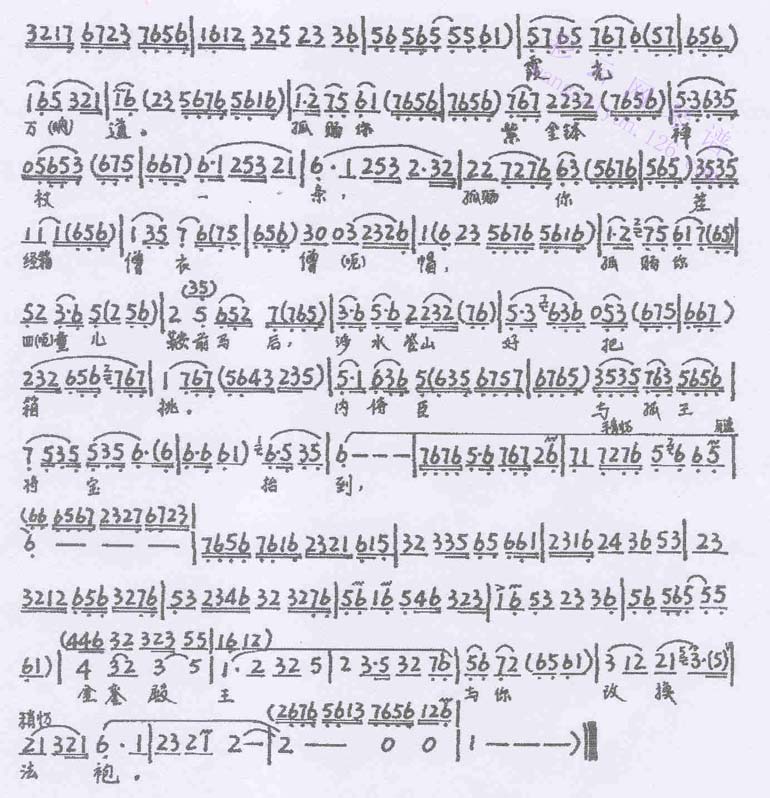 3217 6723 7656|1612 325 23 36|56 565 55 61)|5765 7676(57|656)
霞 光
165 321|16 (23 5676 5616)|1·2 75 61 (7656|7656) 767 2232 (7656)|5·3635
万(哪) 道。 孤赐你 紫金钵 禅
05653 (675|667) 6·1 253 21|6·1 253 2·32|22 7276 63 (5676|565) 3535
杖 一 条， 孤赐 你 差
11 1(656)|1 35 7 6(75|656) 30 03 2326|1(6 23 5676 5616)|1·2 75 617(65)|
经箱 僧 衣 僧 (呃) 帽， 孤 赐 你
(35)
52 3·6 5(2 56)|2 5 652 7(765)|3·6 5·6 2232(76)|5·3 636 053 (675|667)
四(呃)童 儿 鞍前马 后， 涉 水 登山 好 把
232 656 767|1 767 (5643 235)|5·1 636 5(635 6757|6765) 3535 763 5656|
箱 挑。 内侍 臣 与 孤王
稍慢
7 535 535 6·(6|6·6 61) 6·5 35|6---|7676 5·6 767 26|71 7276 5 6 6 5|
将 宝 抬 到，
(66 6567 2327 6723|
6 — — — |7656 7616 2321 615|32 335 65 661|2316 24 36 53|23
3212 656 3276|53 2346 32 3276|56 16 546 323)|16 53 23 36|56 565 55
(446 32 323 55|16 12)
61)|4 32 3 5|1·2 32 5|2 3·5 32 76|56 72 (65 61)|3 12 21 3·(5)|
金銮 殿 王 与你 改 换
稍慢
(2676 5613 7656 126|
21 321 6·1|23 21 2—|2 — 0 0|1 — — —)‖
法 袍。